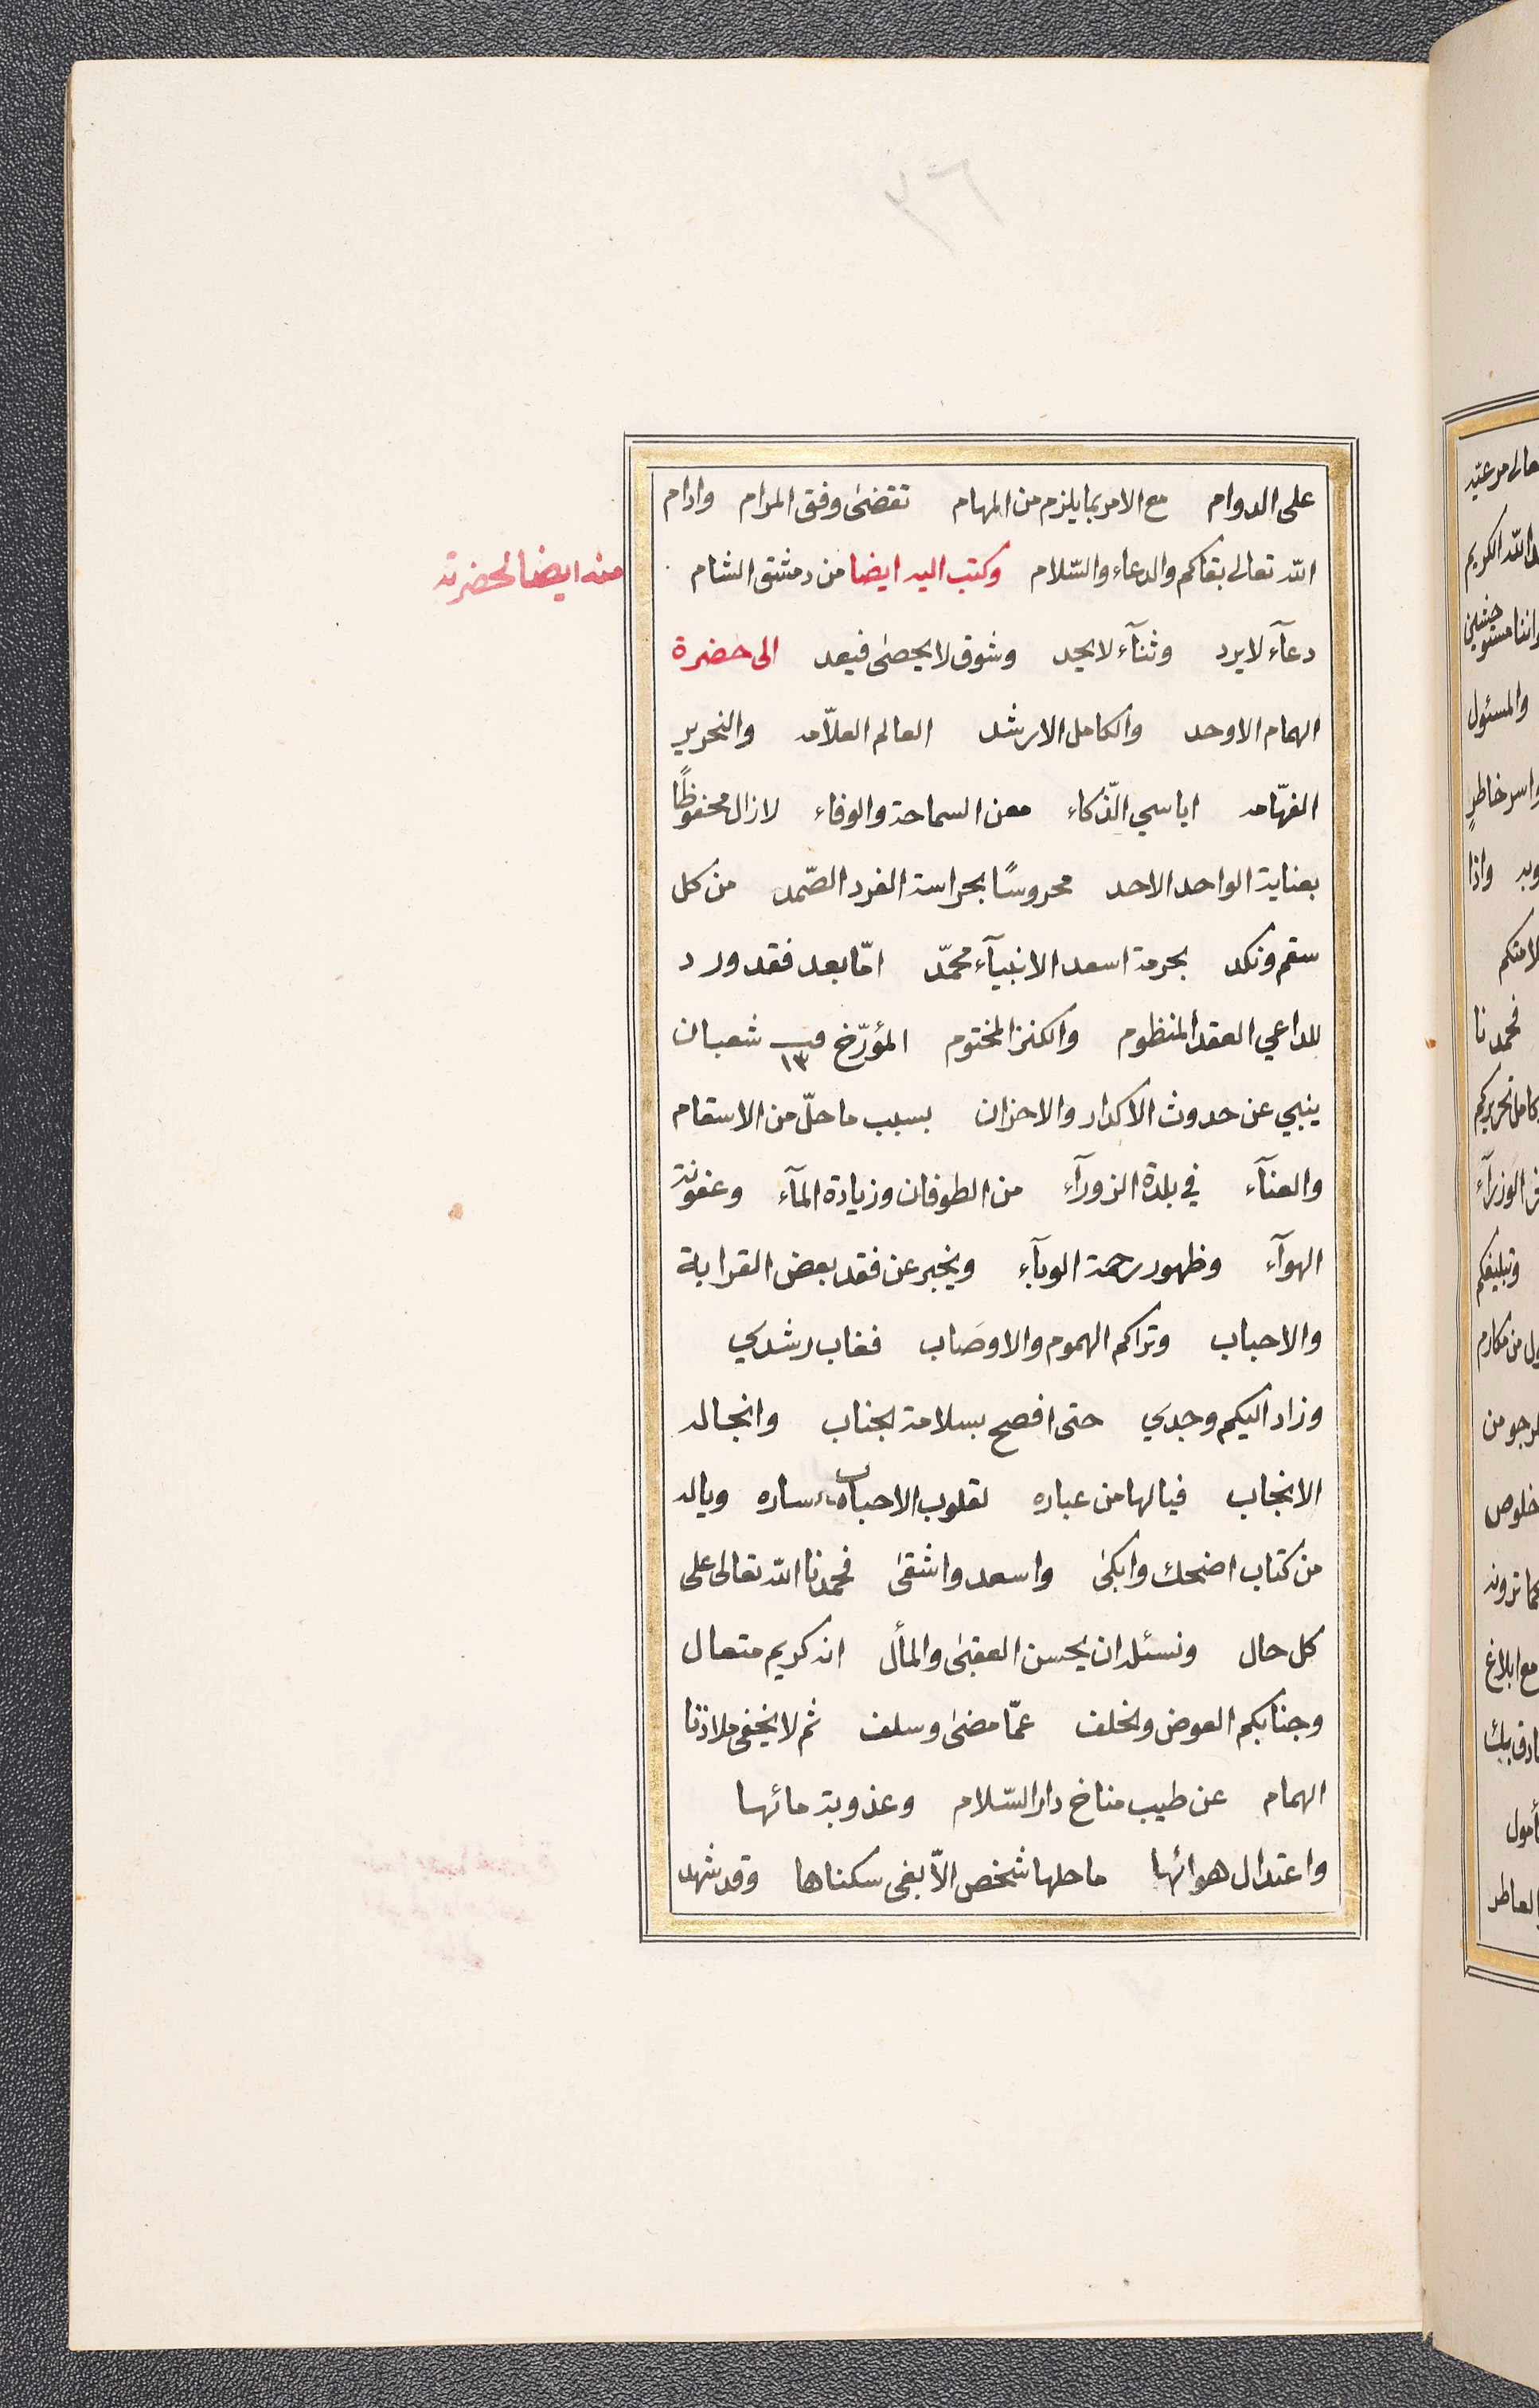 ٢٦
على الدوام مع الامر بما يلزم من المهام تقضى وفق المرام وادام
الله تعالى بقاكم والدعاء والسّلام وكتب اليه ايضا من دمشق الشام
منه ايضا لحضرته
دعآء لا يرد وثنآء لا يحد وشوق لا يحصىٰ فيعد الى حضرة
الهمام الاوحد والكامل الارشد العالم العلاّمه والنحرير
الفهّامه اياسي الّذكاء معن السماحة والوفاء لا زال محفوظًا
بعناية الواحد الاحد محروسًا بحراسة الفرد الصّمد من كل
سقم ونكد بحرمة اسعد الانبيآء محمّد امّا بعد فقد ورد
للداعي العقد المنظوم والكنز المختوم المؤرّخ في ١٣ شعبان
ينبي عن حدوث الاكدار والاحزان بسبب ما حلّ من الاسقام
والعنآء في بلدة الزورآء من الطوفان وزيادة المآء وعفونة
الهوآء وظهور رحمة الوبآء ويخبر عن فقد بعض القرابة
والاحباب وتراكم الهموم والاوصَاب فغاب رشدي
وزاد اليكم وجدي حتى افصح بسلامة الجناب وانجاله
الانجاب فيا لها من عباره لقلوب الاحباب ساره وياله
من كتاب اضحك وابكىٰ واسعد واشقىٰ فحمدنا الله تعالىٰ على
كل حال ونسئله ان يحسن العقبىٰ والمأل انه كريم متعال
وجنابكم العوض والخلف عمّا مضىٰ وسلف ثم لا يخفى ملاذنا
الهمام عن طيب مناخ دار السّلام وعذوبة مائها
واعتدال هوائها ما حلها شخص الاّ بغى سكناها وقد شهد